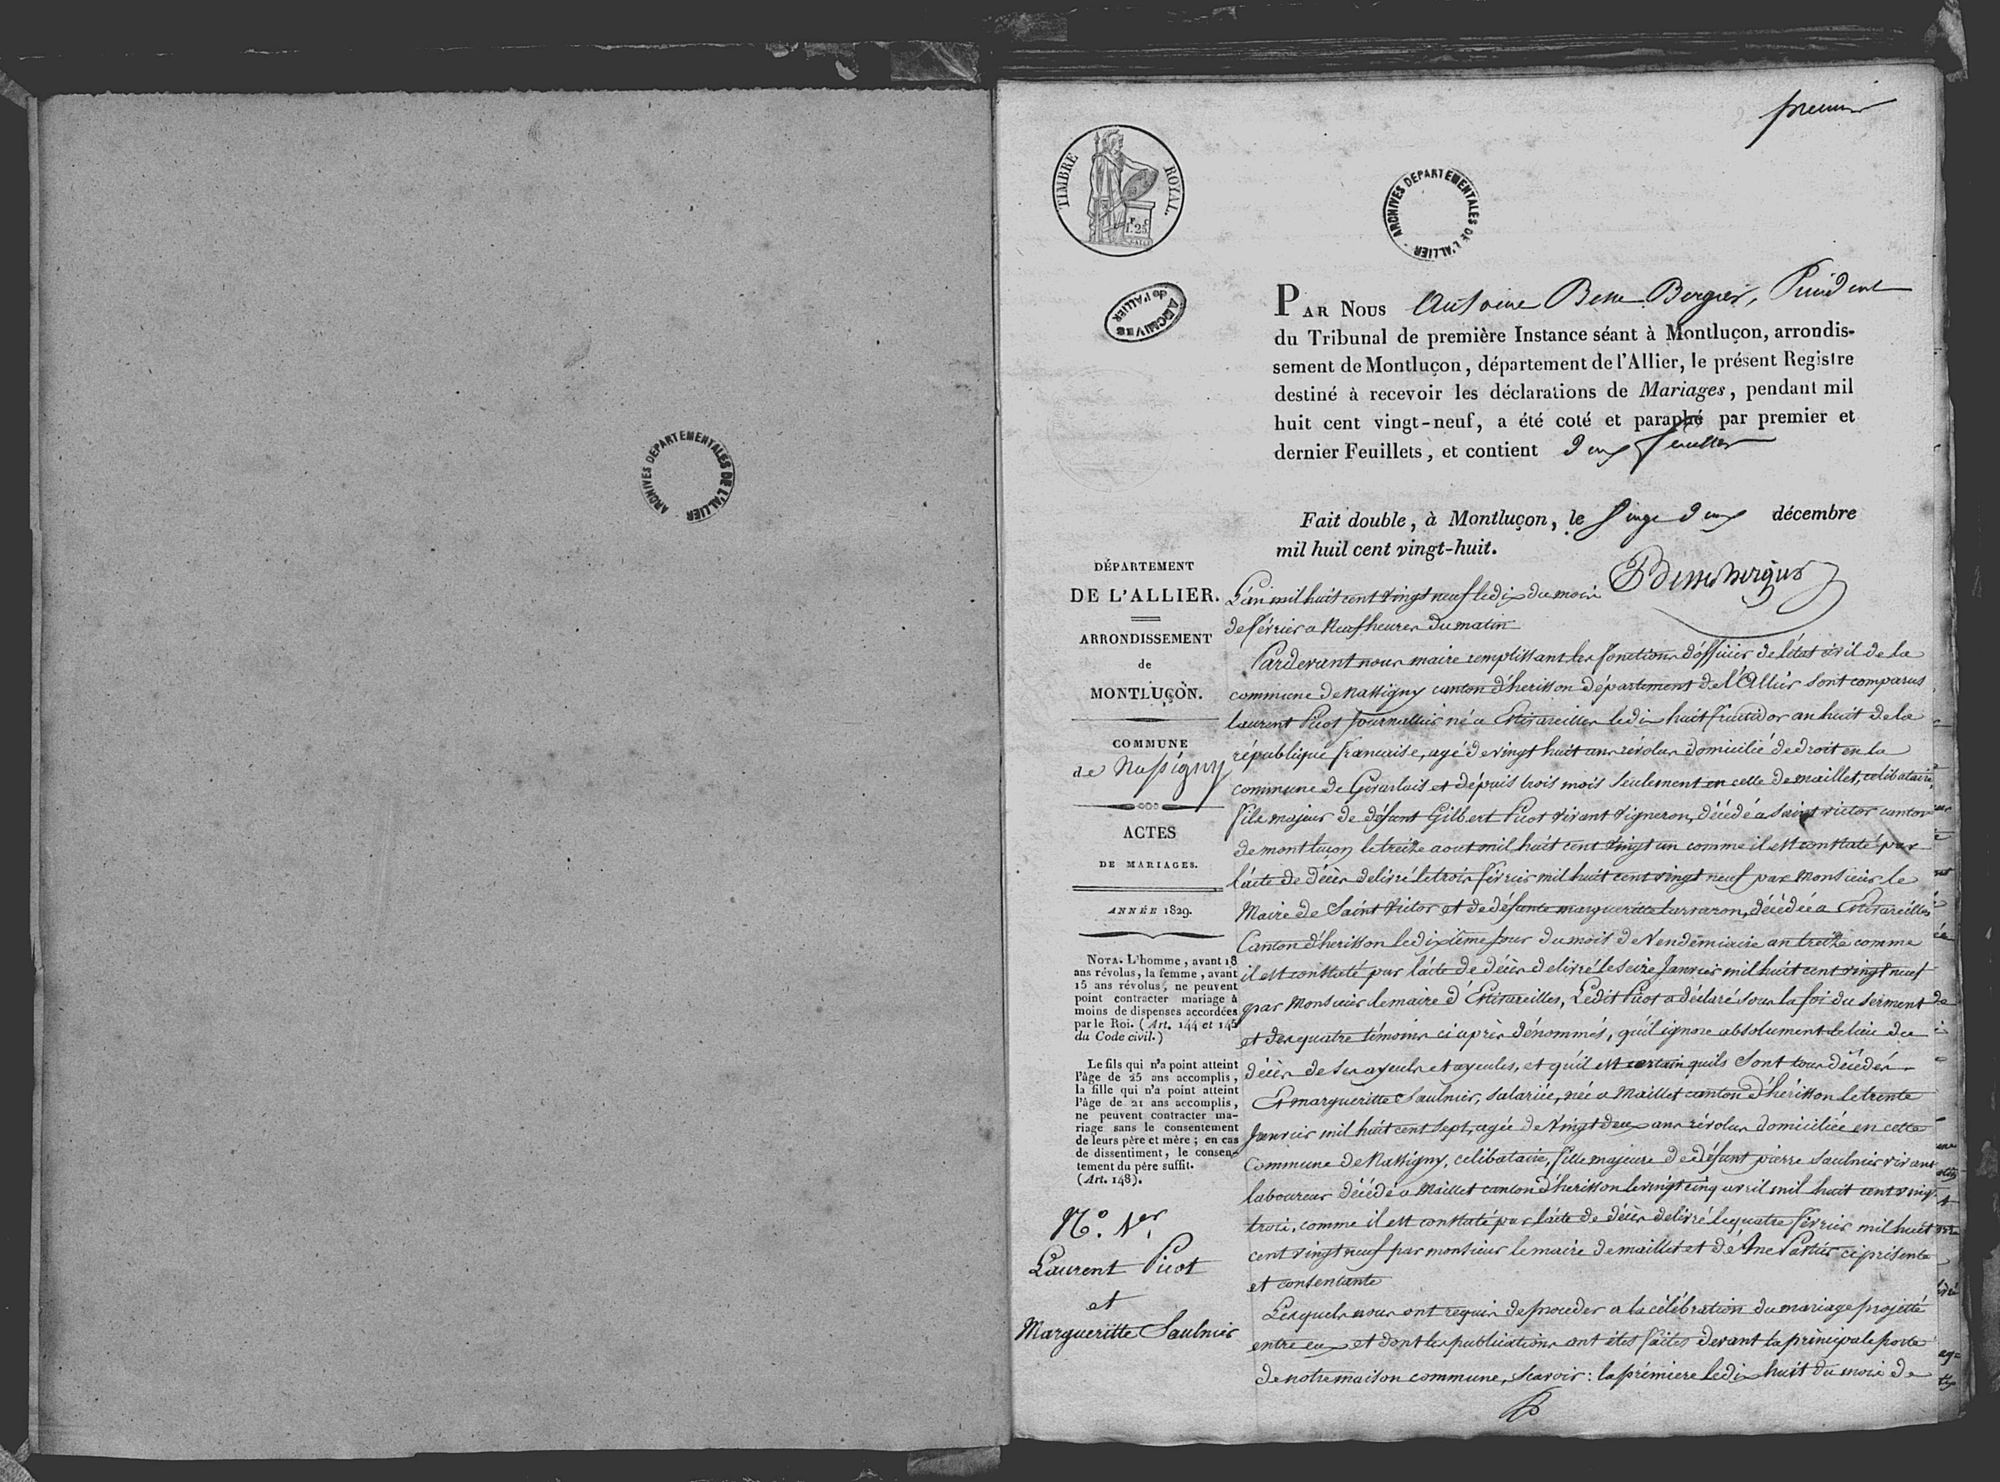 ARCHIVES DEPARTEMENTALES DE L'ALLIER
premier
TIMBRE ROYAL.
F. C.
1. 25
ARCHIVES DEPARTEMENTALES DE L'ALLIER
ARCHIVES de l'ALLIER
PAR NOUS Antoine Besse Bergier, Président
du Tribunal de première Instance séant à Montluçon, arrondis-
sement de Montluçon, département de l'Allier, le présent Registre
destiné à recevoir les déclarations de Mariages, pendant mil
huit cent vingt-neuf, a été coté et paraphé par premier et
dernier Feuillets, et contient deux feuilles
Fait double, à Montluçon, le décembre
mil huil cent vingt-huit.
DÉPARTEMENT
DE L'ALLIER.
ARRONDISSEMENT
de
MONTLUÇON.
COMMUNE
de Nassigny
ACTES
DE MARIAGES.
ANNÉE 1829.
NOTA. L'homme, avant 18
ans révolus, la femme, avant
15 ans révolus, ne peuvent
point contracter mariage à
moins de dispenses accordées
par le Roi. (Art. 144 et 145
du Code civil.)
Le fils qui n'a point atteint
l'âge de 25 ans accomplis,
la fille qui n'a point atteint
l'âge de 21 ans accomplis,
ne peuvent contracter ma-
riage sans le consentement
de leurs père et mère; en cas
de dissentiment, le consen-
tement du père suffit.
(Art. 148).
N°. 1er.
Laurent Picot
et
Margueritte Saulnier
L'an mil huit cent vingt neuf le dix du mois
de février a neuf heures du matin
Pardevant nous maire remplissant les fonctions d'officier de l'état civil de la
commune de Nassigny canton d'herisson département de l'Allier sont comparus
laurent Picot journallier né a Estivareilles le dix huit fructidor an huit de la
république francaise, agé de vingt huit ans révolus domicilié de droit en la
commune de Givarlais et dépuis trois mois seulement en celle de maillet, celibataire,
fils majeur de défunt Gilbert Picot vivant vigneron, décédé a saint victor canton
de montluçon le treize aout mil huit cent vingt un comme il est constaté par
l'acte de décès delivré le trois février mil huit cent vingt neuf par Monsieur le
Maire de Saint Victor et de défunte margueritte décédée a Estivareilles
Canton d'herisson le dixième jour du mois de Vendémiaire an treize comme
il est constaté par l'acte de décès delivré le seize Janvier mil huit cent vingt neuf
par Monsieur le maire d'Estivareilles, Ledit Picot a déclaré sous la foi du serment
et des quatre témoins ci après dénommés, qu'il ignore absolument le lieu du
décès de ses ayeuls et ayeules, et qu'il est certain quils sont tous décédés.
Et margueritte Saulnier, salariée, née a Maillet canton d'hérisson le trente
Janvier mil huit cent sept, agée de Vingt deux ans révolus domiciliée en cette
Commune de Nassigny, celibataire, fille majeure de défunt pierre Saulnier vivant
laboureur décédé a Maillet canton d'herisson le vingt cinq avril mil huit cent vingt
trois, comme il est constaté par l'acte de décès delivré le quatre février mil huit
cent vingt neuf par monsieur le maire de maillet et de Ane Partier ci présente
et consentante
Lesquels nous ont requis de proceder a la célébration du mariage projetté
entre eux et dont les publications ont étés faites devant la principale porte
de notre maison commune, scavoir: la prémiere le dix huit du mois de